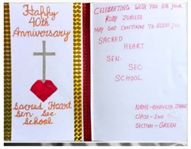 Happy
40th
Anniversary
Sacred Heart
Sen Sec
School
CELEBRATING WITH YOU
RUBY JUBILEE
MAY GOD CONTINUE TO BLESS
SACRED
HEART
SEN.
SEC
SCHOOL
NAME-
CLASS-
SECTION- GREEN